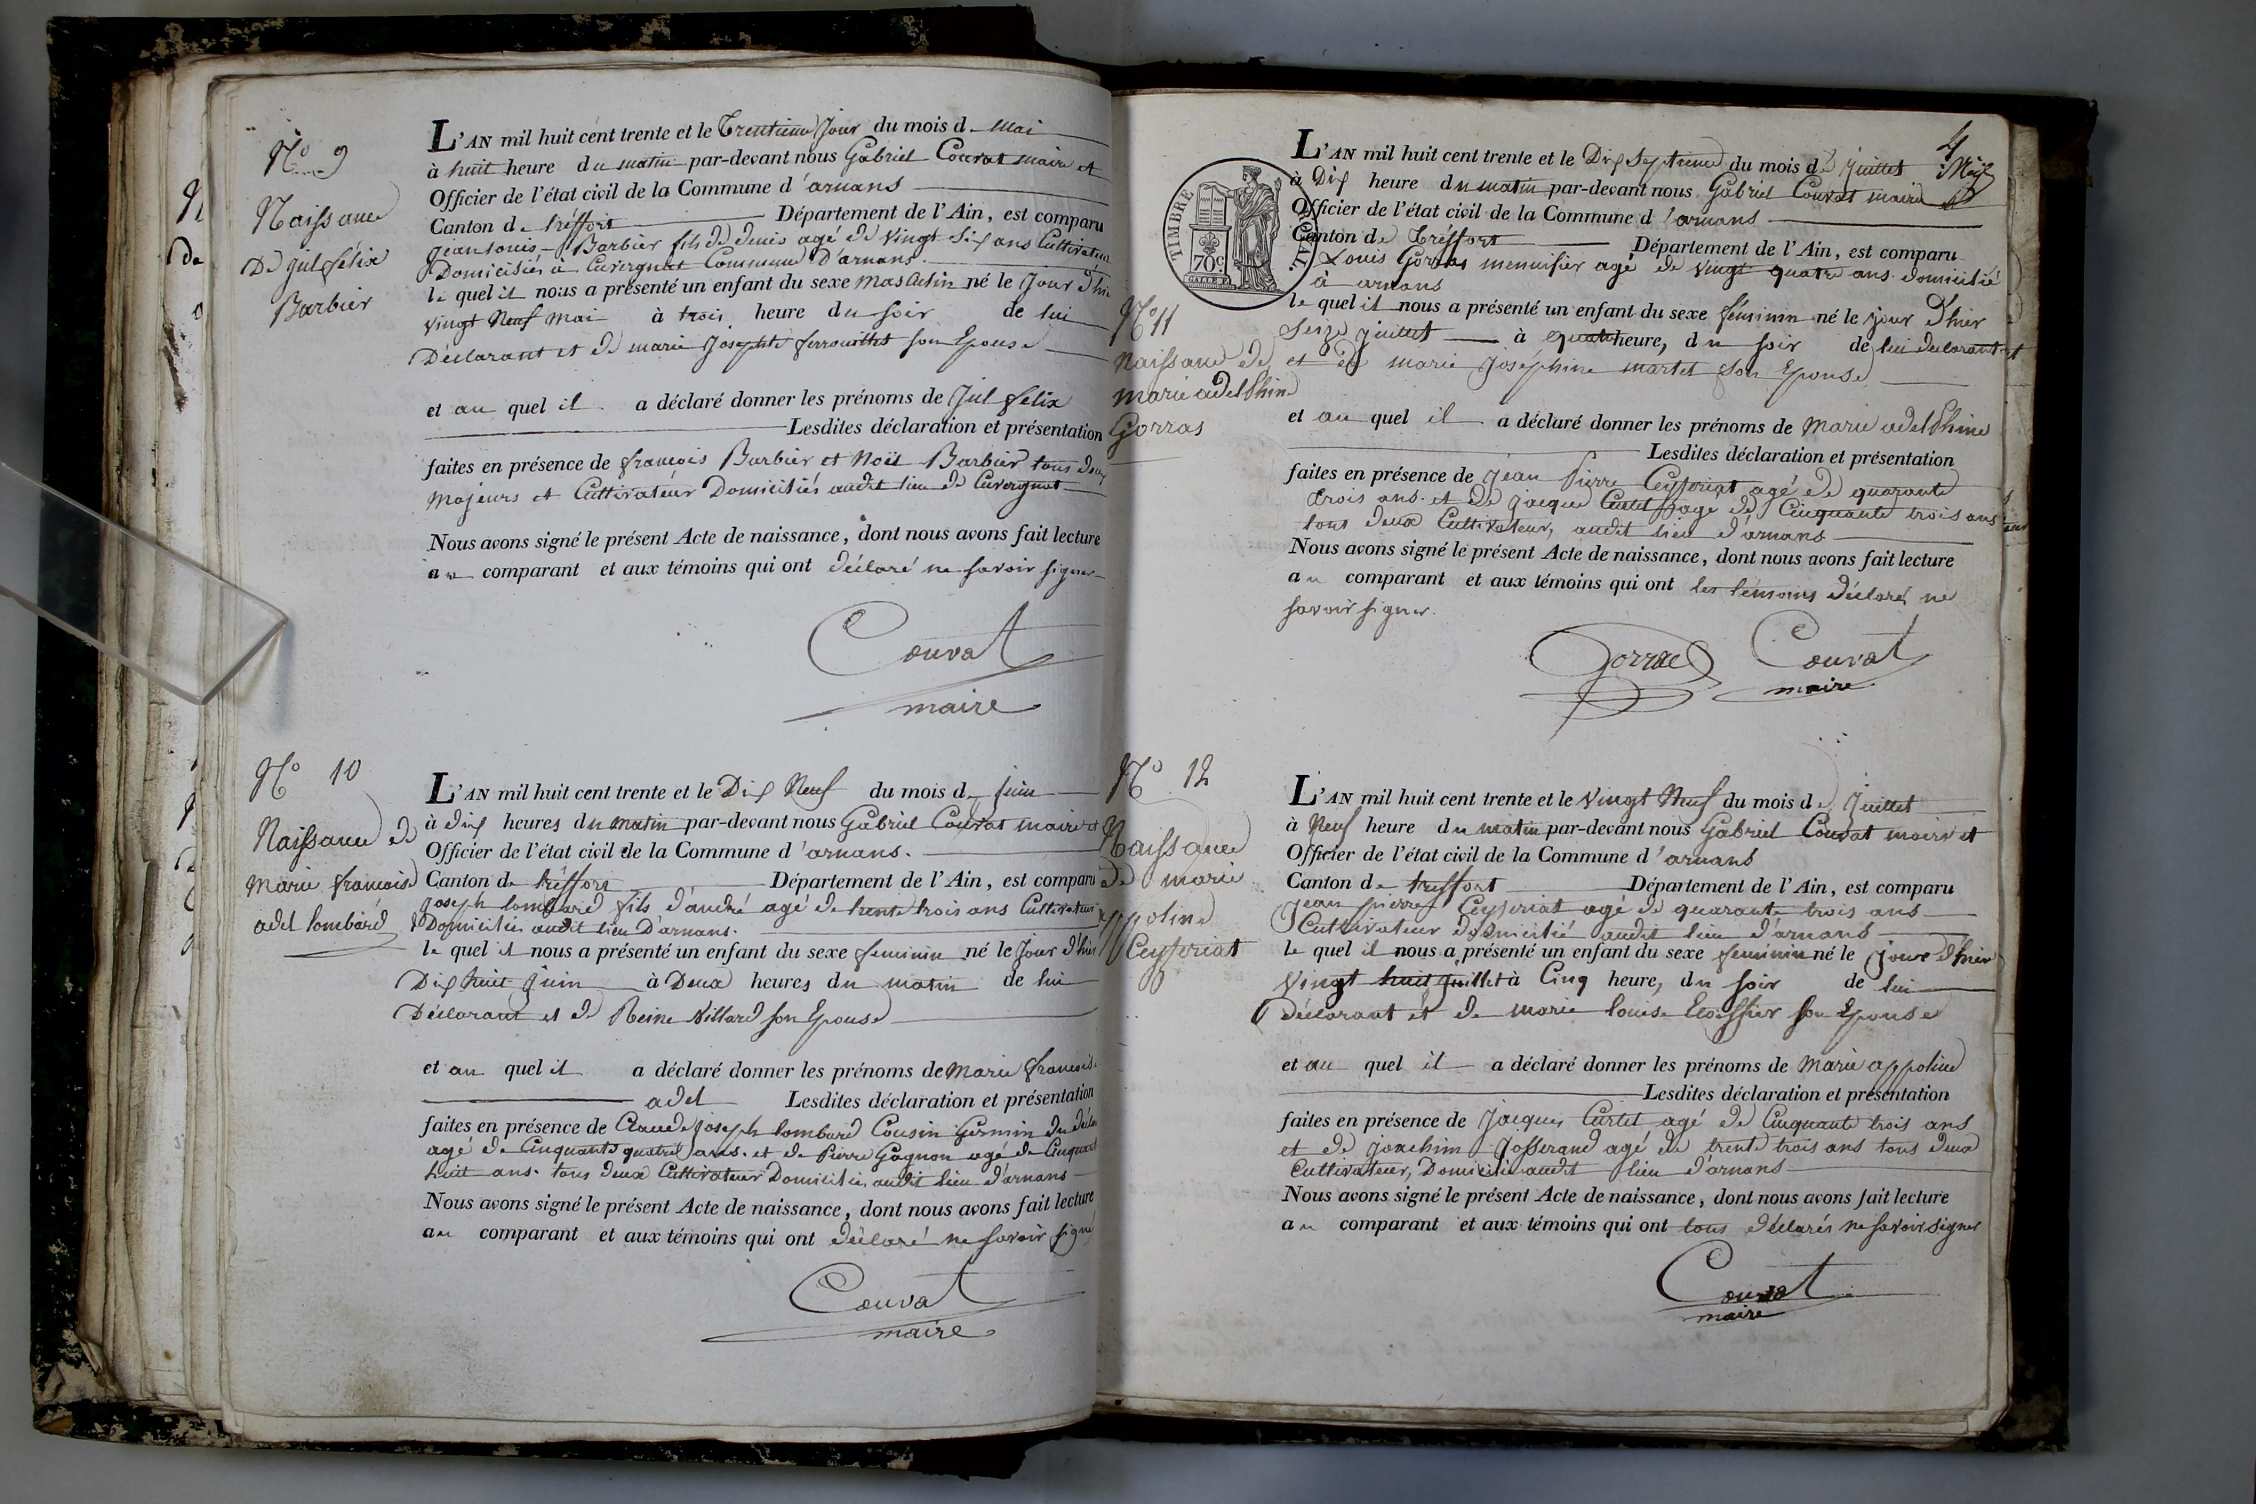 N° 9
Naissance
De jul félix
Barbier
L'AN mil huit cent trente et le Trentieme Jour du mois d. mai
à huit heure du matin par-devant nous Gabriel Couvat maire et
Officier de l'état civil de la Commune d'arnans
Canton de tréffort Département de l'Ain, est comparu
jean louis Barbier fils de denis agé de vingt six ans Cultivateur
Domiciliés à Cuvergnat Commune D'arnans.
le quel il nous a présenté un enfant du sexe masculin né le Jour d'hier
vingt Neuf mai à trois heure du soir de lui
Déclarant et de marie Josephte ferrouillet son Epouse
et au quel il a déclaré donner les prénoms de Jul félix
Lesdites déclaration et présentation
faites en présence de françois Barbier et Noël Barbier tous deux
majeurs et Cultivateur Domiciliés audit lieu de Cuvergnat
Nous avons signé le présent Acte de naissance, dont nous avons fait lecture
au comparant et aux témoins qui ont déclaré ne savoir signer
Couvat
maire
N° 10
Naissance de
Marie françoise
adel lombard
L'AN mil huit cent trente et le Dix Neuf du mois de juin
à dix heures du matin par-devant nous Gabriel Couvat maire et
Officier de l'état civil de la Commune d'arnans.
Canton de tréffort Département de l'Ain, est comparu
joseph lombard fils d'andré agé de trente trois ans Cultivateur
Domicilié audit lieu D'arnans.
le quel il nous a présenté un enfant du sexe feminin né le Jour d'hier
Dix huit juin à Deux heures du matin de lui
Déclarant et de Reine Villard son Epouse
et au quel il a déclaré donner les prénoms de Marie françoise
adel Lesdites déclaration et présentation
faites en présence de Claude joseph lombard Cousin Germin du
agé de Cinquante quatre ans. et de Pierre Gagnon agé de Cinquante
huit ans. tous deux Cultivateur Domicilié audit lieu d'arnans
Nous avons signé le présent Acte de naissance, dont nous avons fait lecture
au comparant et aux témoins qui ont déclaré ne savoir signé
Couvat
maire
4
TIMBRE ROYAL.
70c
N° 11
Naissance de
marie adelphine
Gorras
L'AN mil huit cent trente et le Dix Septieme du mois de juillet
à Dix heure du matin par-devant nous Gabriel Couvat maire et
Officier de l'état civil de la Commune d'arnans
Canton de Tréffort Département de l'Ain, est comparu
Louis Gorras menuisier agé de vingt quatre ans domicilié
à arnans
le quel il nous a présenté un enfant du sexe féminin né le jour D'hier
Seize juillet à quatre heure, du soir de lui declarant et
et de marie Joséphine martet son Epouse
et au quel il a déclaré donner les prénoms de marie adelphine
Lesdites déclaration et présentation
faites en présence de jean Pierre Ceyseriat agé de quarante
trois ans. et de jacque Curtet agé de Cinquante trois ans
tous deux Cultivateur, audit lieu d'arnans
Nous avons signé le présent Acte de naissance, dont nous avons fait lecture
au comparant et aux témoins qui ont les témoins déclaré ne
savoir signer.
Gorras
Couvat
maire
N° 12
Naissance
de marie
appoline
Ceyseriat
L'AN mil huit cent trente et le vingt Neuf du mois de juillet
à Neuf heure du matin par-devant nous Gabriel Couvat maire et
Officier de l'état civil de la Commune d'arnans
Canton de treffort Département de l'Ain, est comparu
jean pierre Ceyseriat agé de quarante trois ans
Cultivateur domicilié audit lieu d'arnans
le quel il nous a présenté un enfant du sexe feminin né le jour d'hier
Vingt huit juillet à Cinq heure, du soir de lui
déclarant et de marie louise son Epouse
et au quel il a déclaré donner les prénoms de Marie appoline
Lesdites déclaration et présentation
faites en présence de jacques Curtet agé de Cinquante trois ans
et de joachim Josserand agé de trente trois ans tous deux
Cultivateur, Domicilié audit lieu d'arnans
Nous avons signé le présent Acte de naissance, dont nous avons fait lecture
au comparant et aux témoins qui ont tous déclarés ne savoir signer
Couvat
maire